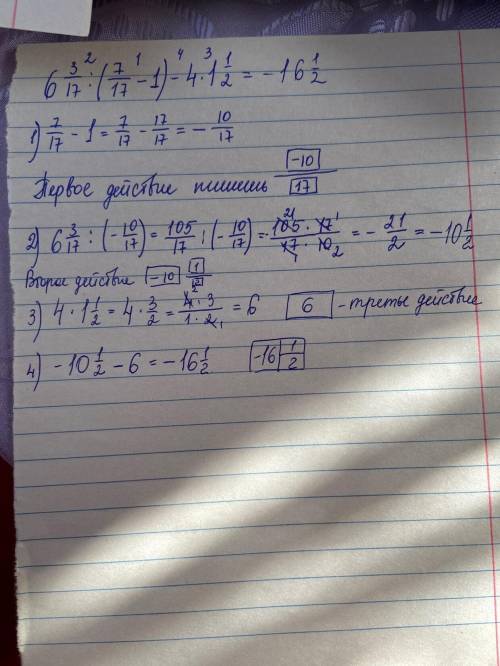 2 1 4 3
6 3/17 : (7/17 - 1) - 4 · 1 1/2 = -16 1/2
1) 7/17 - 1 = 7/17 - 17/17 = - 10/17
Первое действие пишешь -10/17
2) 6 3/17 : (-10/17) = 105/17 : (-10/17) = - 105 · 17/17 · 10 = - 21/2 = -10 1/2
Второе действие -10 1/2
3) 4 · 1 1/2 = 4 · 3/2 = 4 · 3/1 · 2 = 6 6 - третье действие
4) -10 1/2 - 6 = -16 1/2 -16 1/2